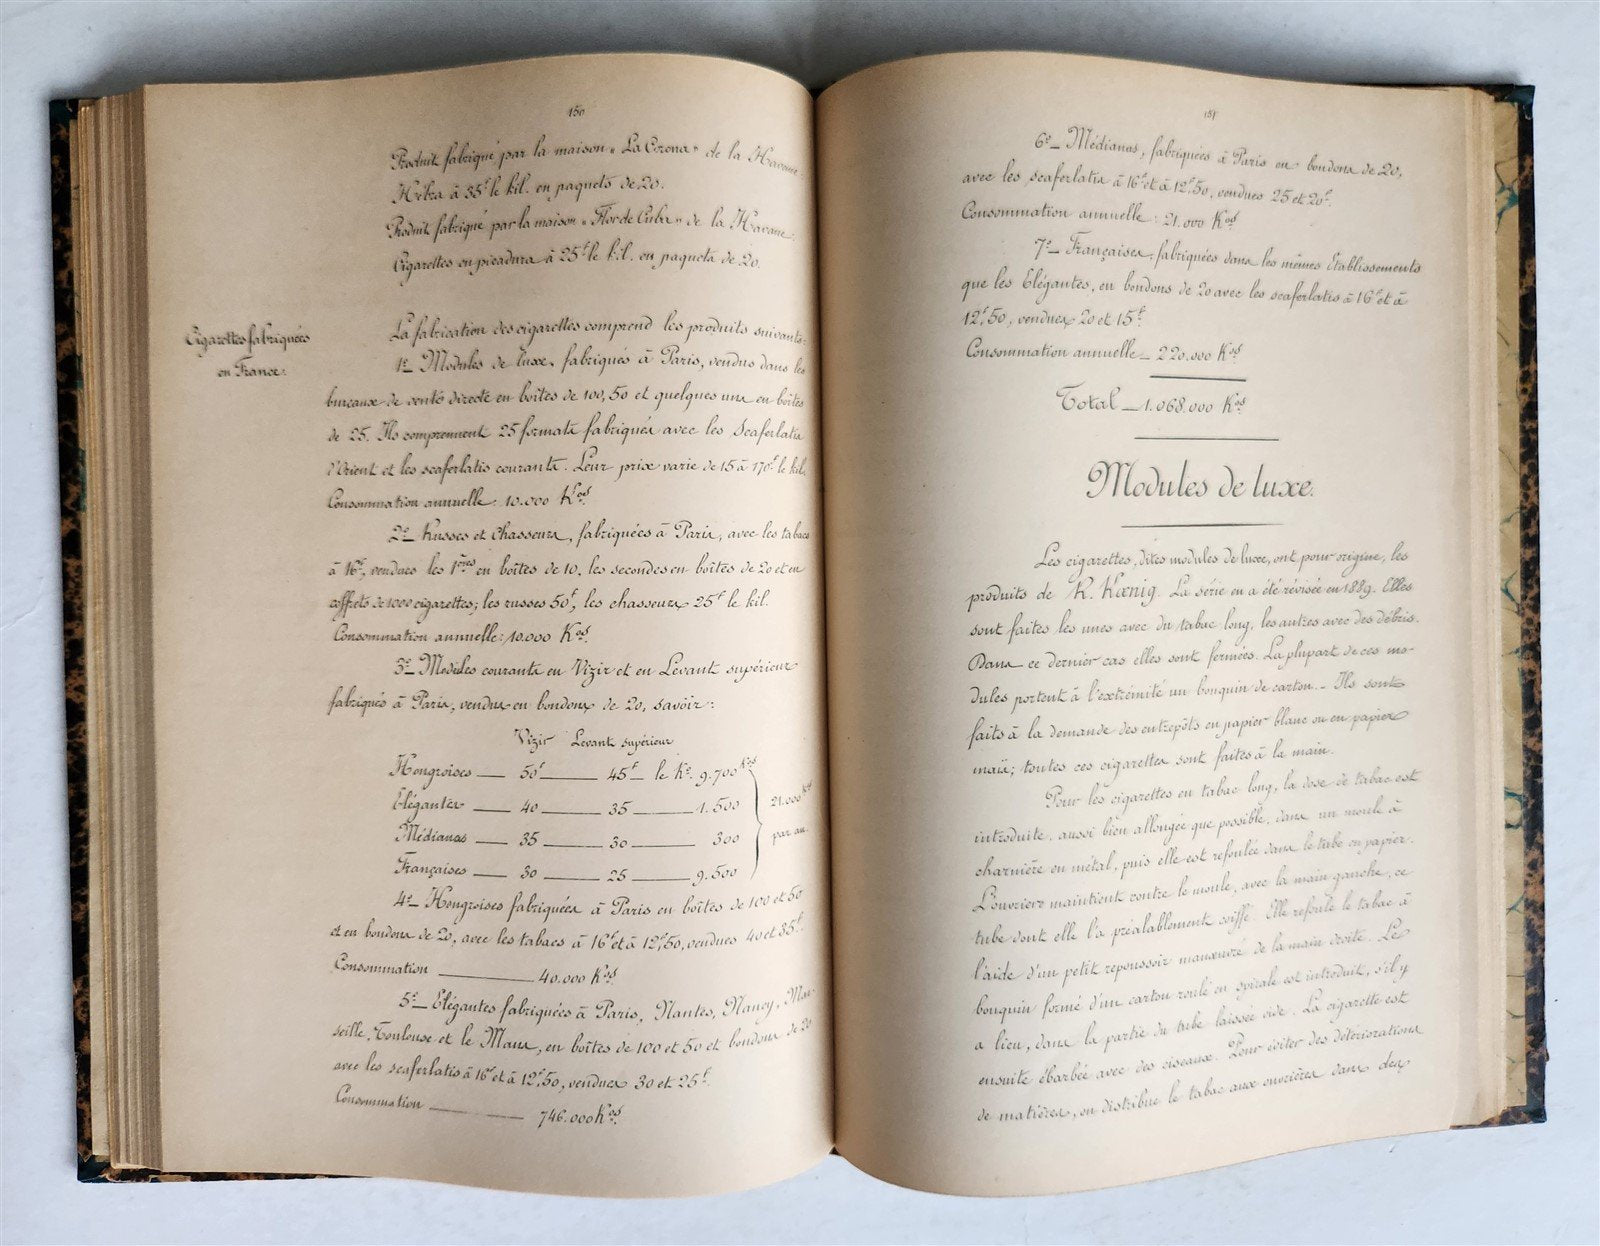 150
Produit fabriqué par la maison "La Corona" de la Havane:
Hebra à 35f le kil. en paquets de 20.
Produit fabriqué par la maison "Flor de Cuba" de la Havane:
Cigarettes en picadura à 25f le kil. en paquets de 20.
Cigarettes fabriquées
en France.
La fabrication des cigarettes comprend les produits suivants:
1º_ Modules de luxe, fabriqués à Paris, vendus dans les
bureaux de vente directe en boîtes de 100, 50 et quelques uns en boîtes
de 25. Ils comprennent 25 formats fabriqués avec les Scaferlatis
d'Orient et les scaferlatis courants. Leur prix varie de 15 à 170f le kil.
Consommation annuelle: 10.000 Kos
2º_ Russes et Chasseurs, fabriquées à Paris, avec les tabacs
à 16f, vendues les 1ères en boîtes de 10, les secondes en boîtes de 20 et en
coffrets de 1000 cigarettes; les russes 50f, les chasseurs 25f le kil.
Consommation annuelle: 10.000 Kos
3º_ Modules courants en Vizir et en Levant supérieur
fabriqués à Paris, vendus en bondons de 20, savoir:
Vizir Levant supérieur
Hongroises — 50f — 45f — le Ko. 9.700 Kos
Elégantes — 40 — 35 — 1.500
Médianas — 35 — 30 — 300
Françaises — 30 — 25 — 9.500
21.000 Kos
par an.
4º_ Hongroises fabriquées à Paris en boîtes de 100 et 50
et en bondons de 20, avec les tabacs à 16f et à 12f,50, vendues 40 et 35f.
Consommation — 40.000 Kos
5º_ Elégantes fabriquées à Paris, Nantes, Nancy, Mar-
seille, Toulouse et le Mans, en boîtes de 100 et 50 et bondons de 20
avec les scaferlatis à 16f et à 12f,50, vendues 30 et 25f.
Consommation — 746.000 Kos
151
6º_ Médianas, fabriquées à Paris en bondons de 20,
avec les scaferlatis à 16f et à 12f,50, vendues 25 et 20f.
Consommation annuelle: 21.000 Kos
7º_ Françaises, fabriquées dans les mêmes Etablissements
que les Elégantes, en bondons de 20 avec les scaferlatis à 16f et à
12f,50, vendues 20 et 15f.
Consommation annuelle _ 220.000 Kos
Total _ 1.068.000 Kos
Modules de luxe.
Les cigarettes, dites modules de luxe, ont pour origine, les
produits de K. Kœnig. La série en a été révisée en 1889. Elles
sont faites les unes avec du tabac long, les autres avec des débris.
Dans ce dernier cas elles sont fermées. La plupart de ces mo-
dules portent à l'extrémité un bouquin de carton. _ Ils sont
faits à la demande des entrepôts en papier blanc ou en papier
maïs; toutes ces cigarettes sont faites à la main.
Pour les cigarettes en tabac long, la dose de tabac est
introduite, aussi bien allongée que possible, dans un moule à
charnière en métal, puis elle est refoulée dans le tube en papier.
L'ouvrière maintient contre le moule, avec la main gauche, ce
tube dont elle l'a préalablement coiffé. Elle refoule le tabac à
l'aide d'un petit repoussoir manœuvré de la main droite. Le
bouquin formé d'un carton roulé en spirale est introduit, s'il y
a lieu, dans la partie du tube laissée vide. La cigarette est
ensuite ébarbée avec des ciseaux. Pour éviter des détériorations
de matières, on distribue le tabac aux ouvrières dans des